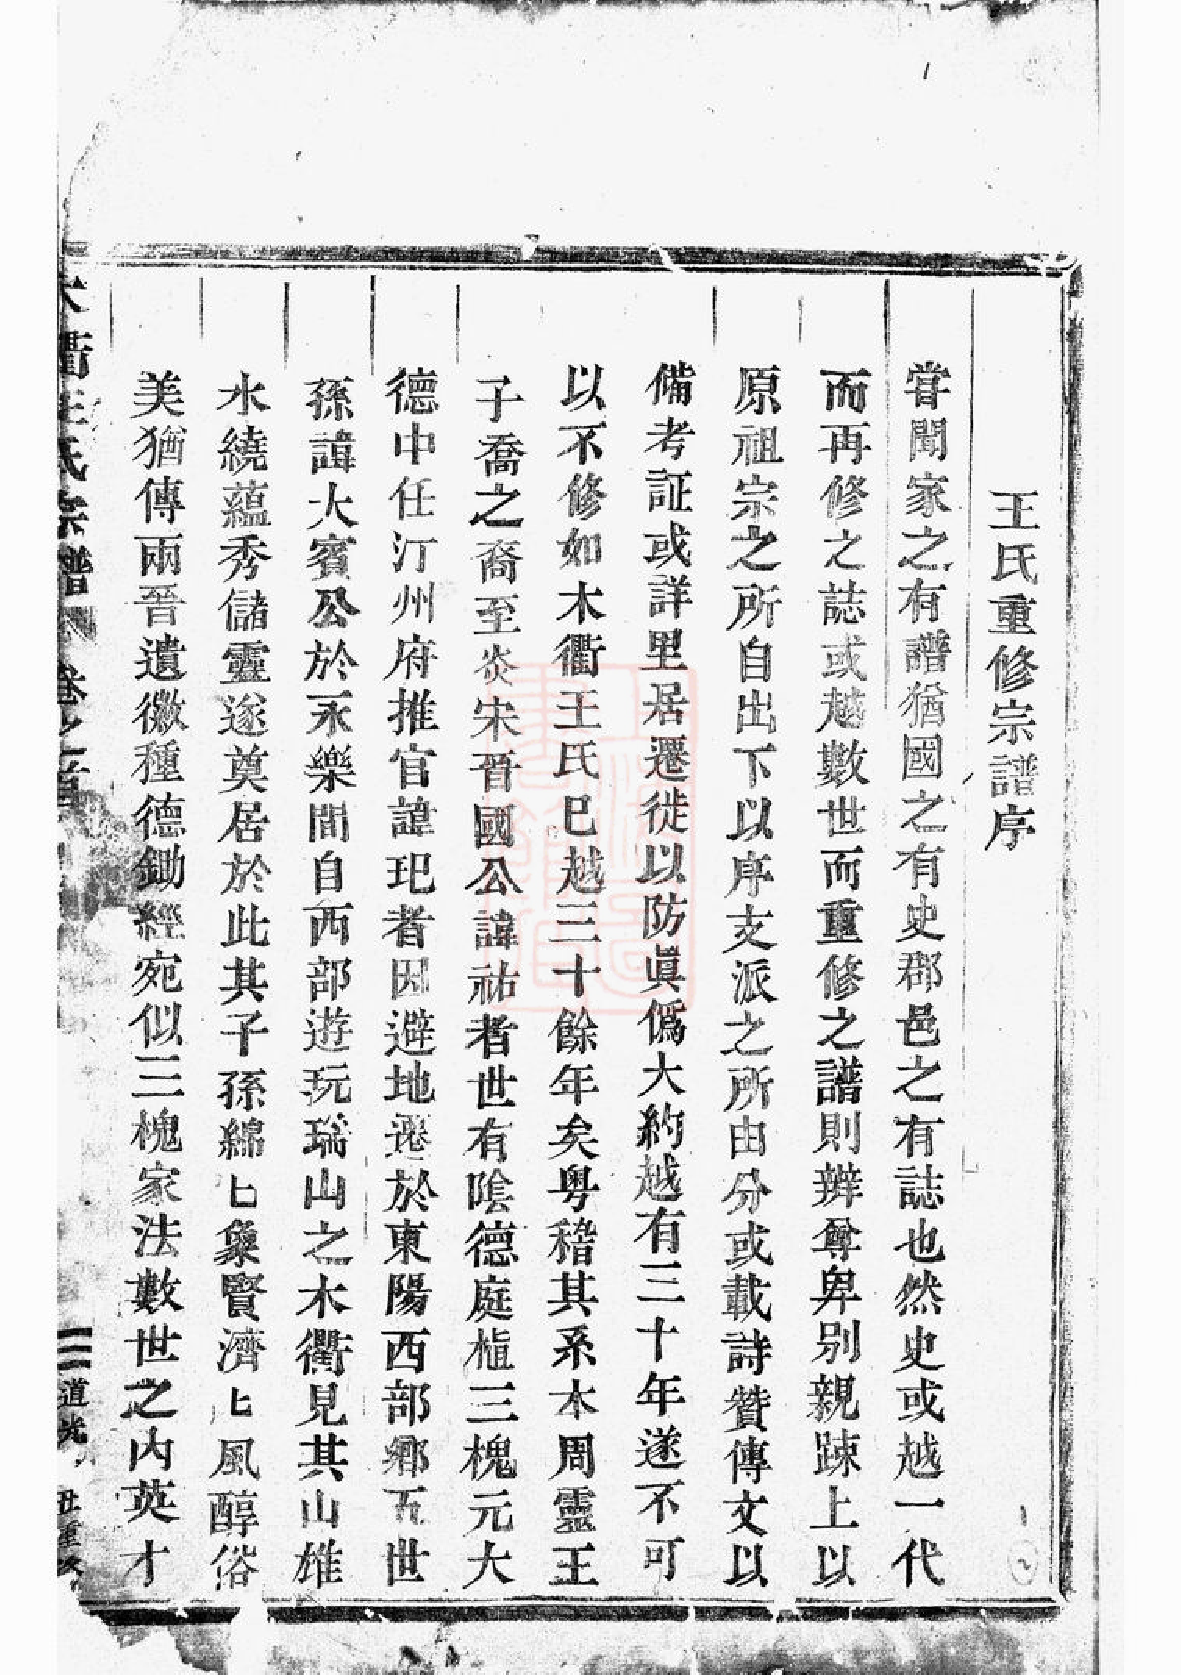 王氏重修宗譜序
甞聞家之有譜猶國之有史郡邑之有誌也然史或越一代
而再修之誌或越數世而重修之譜則辨尊卑別親踈上以
原祖宗之所自出下以序支派之所由分或載詩贊傳文以
備考証或詳里居遷徙以防眞僞大約越有三十年遂不可
以不修如木衢王氏巳越三十餘年矣粤稽其系本周靈王
子喬之裔至炎宋晋國公諱祐者世有陰德庭植三槐元大
德中任汀州府推官諱玘者因避地遷於東陽西部鄉五世
孫諱大賓公於永樂間自西部遊玩瑞山之木衢見其山雄
水繞蘊秀儲靈遂奠居於此其子孫綿匕象賢濟匕風醇俗
美猶傳兩晉遺徽種德鋤經宛似三槐家法數世之内英才
木衢王氏宗譜 卷之首 道光 丑重修